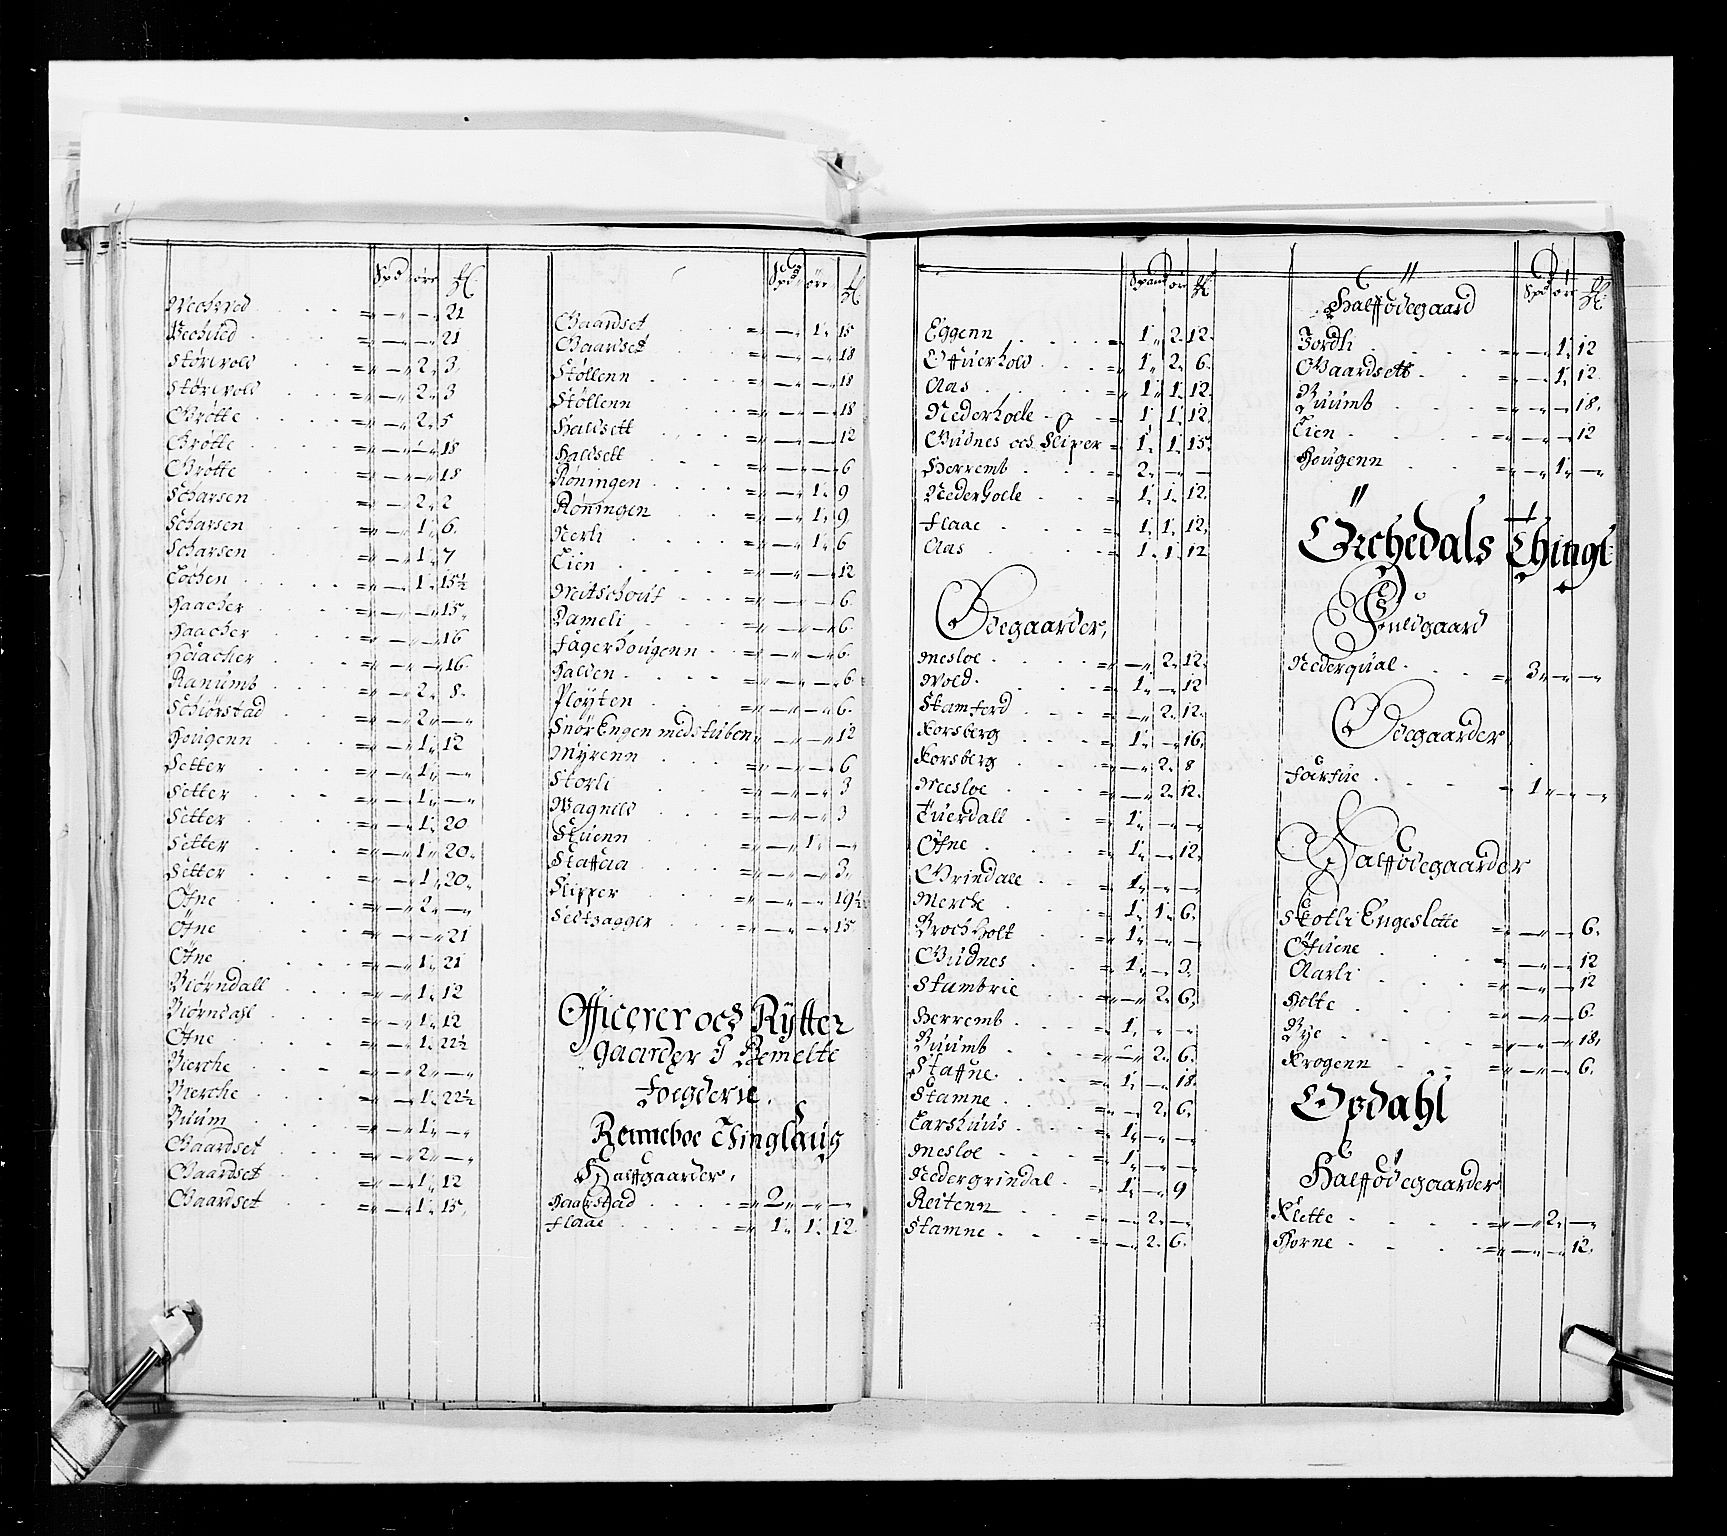 Spd øre
Vechued = — — 21
Størevold = — 2 3
Størevold = — 2 3
Grøtte = — 2 5
Grøtte = — — 18
Grøtte = — — 18
Scharsen = — 2 2
Scharsen = — 1 6
Scharsen = — 1 7
Lochen = — 1 15½
Haacher = — — 15
Haacher = — — 16
Haacher = — — 16
Ranumb = — 2 8
Schiørstad = — 2 —
Hougenn = — 1 12
Setter = — 1 —
Setter = — 1 —
Setter = — 1 20
Setter = — 1 20
Setter = — 1 20
Ofne = — 2 —
Ofne = — — 21
Ofne = — 1 21
Biørndall = — 1 12
Biørndahl = — 1 12
Ofne = — 1 22½
Bierche = — 2 —
Merche = — 1 22½
Buum = — 1 —
Gaardset = — 2 —
Gaardset = — 1 12
Gaardset = — 1 15
Spd øre
Gaardset = — 1 15
Gaardset = — — 18
Støllenn = — — 18
Støllenn = — — 18
Haldsett = — — 12
Haldsett = — — 6
Røningen = — 1 9
Røningen = — 1 9
Nerli = — 1 6
Lien = — — 12
= — — 6
Dameli = — — 6
Fagerhougenn = — — 6
Halden = — — 6
Pløyten = — — 6
Snør Engen med stuben — — 12
Myrenn = — — 6
Storli = — — 3
Wagnild = — — 3
Stuenn = — 1 —
Staffaa = — — 3
Slipper = — — 19½
= — — 15
Officerer och Rytter
gaarder i Bemelte
Foegderie.
Renneboe Thinglaug
Halffgaarder,
Haarstad = 2 — —
Flaae = 1 1 12
Spand ør
Eggenn = 1 2 12
Offuerhold = 1 2 6
Aas = 1 1 12
Nederhoele = 1 1 12
Gudnes och Sliper = 1 1 15
Herremb = 2 — —
Nederhoele = 1 1 12
Flaae = 1 1 12
Aas = 1 1 12
Ødegaarder,
Mesloe = — 2 12
Wold = 1 — 12
Stamferd = — 2 12
Korsberg = 1 — 16
Korsberg = — 2 8
Meesloe = — 2 12
Tuerdall = 1 — —
Ofne = 1 — 12
Grindall = 1 — —
Merche = 1 1 6
Brochholt = 1 — —
Gudnes = 1 — 3
Stambrie = — 2 6
Herremb = 1 — —
Buumb = — 2 6
Staffne = 1 — 18
Stamne = — 2 6
Larshuus = 1 — —
Mesloe = 1 — —
Nedergrindal = 1 — 9
Reitenn = — 2 —
Stamne = — 2 6
Spd ør
Halffødegaard
Jordli = — 1 12
Gaardsett = — 1 12
Buumb = — — 18
Lien = — — 12
Hougenn = — 1 —
Orchedals Thingl
Fuldgaard
Nederqual = 3 — —
Ødegaarder
= 1 — —
Halffødegaarder
Skotli Engeslette = — — 6
Offuene = — — 12
Aarli = — — 12
Holte = — — 6
Rye = — — 18
Krogenn = — — 6
Opdahl
Halffødegaarder
Klette = — 2 —
Horne = — — 12